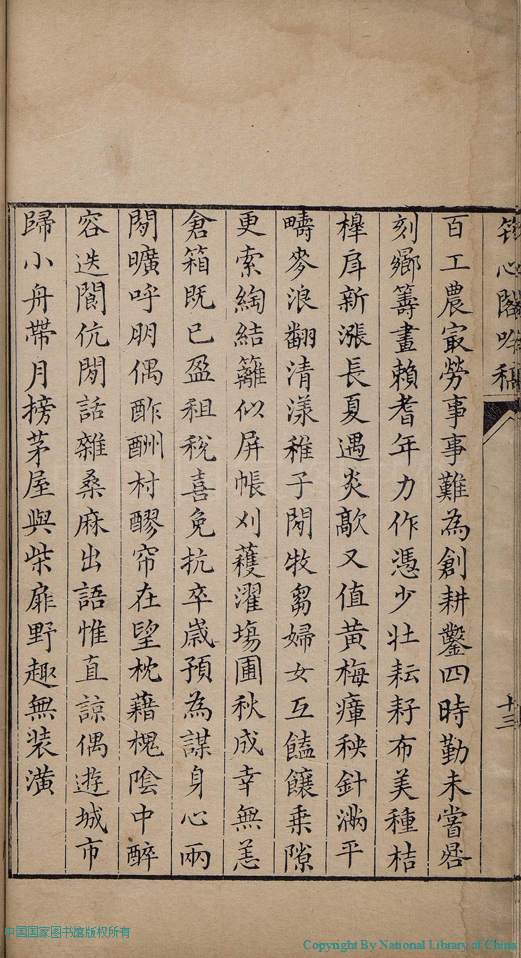 心閣吟稿
十三
百工農㝡勞事事難為創耕鑿四時勤未嘗晷
刻鄉籌畫賴耆年力作憑少壮耘耔布美種桔
槔戽新漲長夏遇炎歊又值黄梅瘴秧針滿平
疇麥浪翻清漾稚子閒牧芻婦女互饁饟乗隙
更索綯結籬似屏帳刈穫濯塲圃秋成幸無恙
倉箱既已盈租稅喜免抗卒歲預為謀身心兩
閒曠呼朋偶酢酬村醪帘在望枕藉槐陰中醉
容迭閬伉閒話雜桑麻出語惟直諒偶遊城市
歸小舟帶月搒茅屋與柴扉野趣無装潢
中国国家图书馆版权所有
Copyright By National Library of China